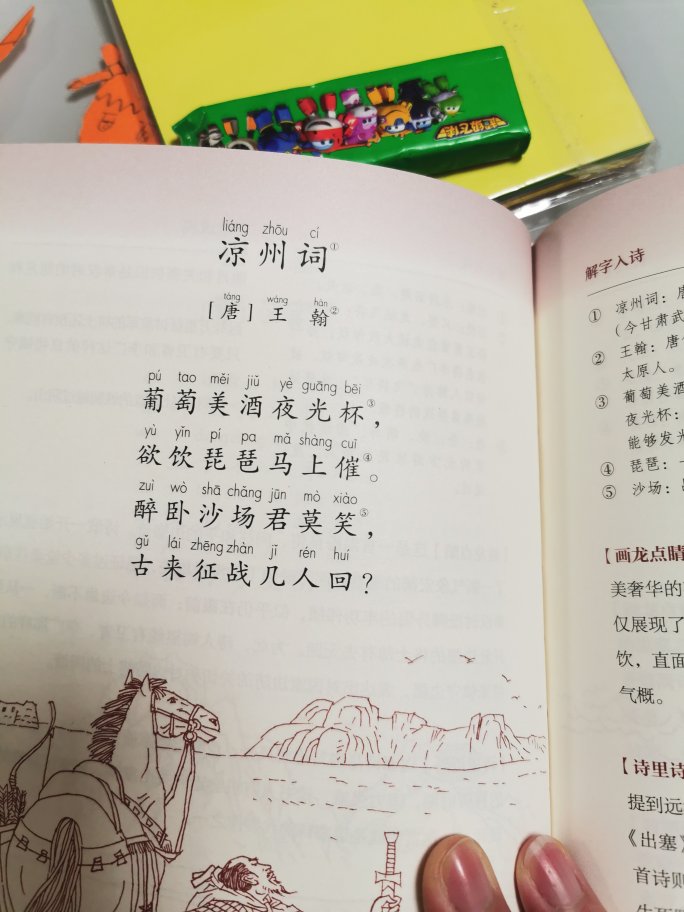 liáng zhōu cí
凉州词①
táng wáng hàn
［唐］王翰②
pú tao měi jiǔ yè guāng bēi
葡萄美酒夜光杯③，
yù yǐn pí pa mǎ shàng cuī
欲饮琵琶马上催④。
zuì wò shā chǎng jūn mò xiào
醉卧沙场君莫笑⑤，
gǔ lái zhēng zhàn jǐ rén huí
古来征战几人回？
解字入诗
① 凉州词：唐
（今甘肃武
② 王翰：唐
太原人。
③ 葡萄美酒
夜光杯：
能够发光
④ 琵琶：
⑤ 沙场：
【画龙点睛
美奢华的
仅展现了
饮，直面
气概。
【诗里诗
提到远
《出塞》
首诗则